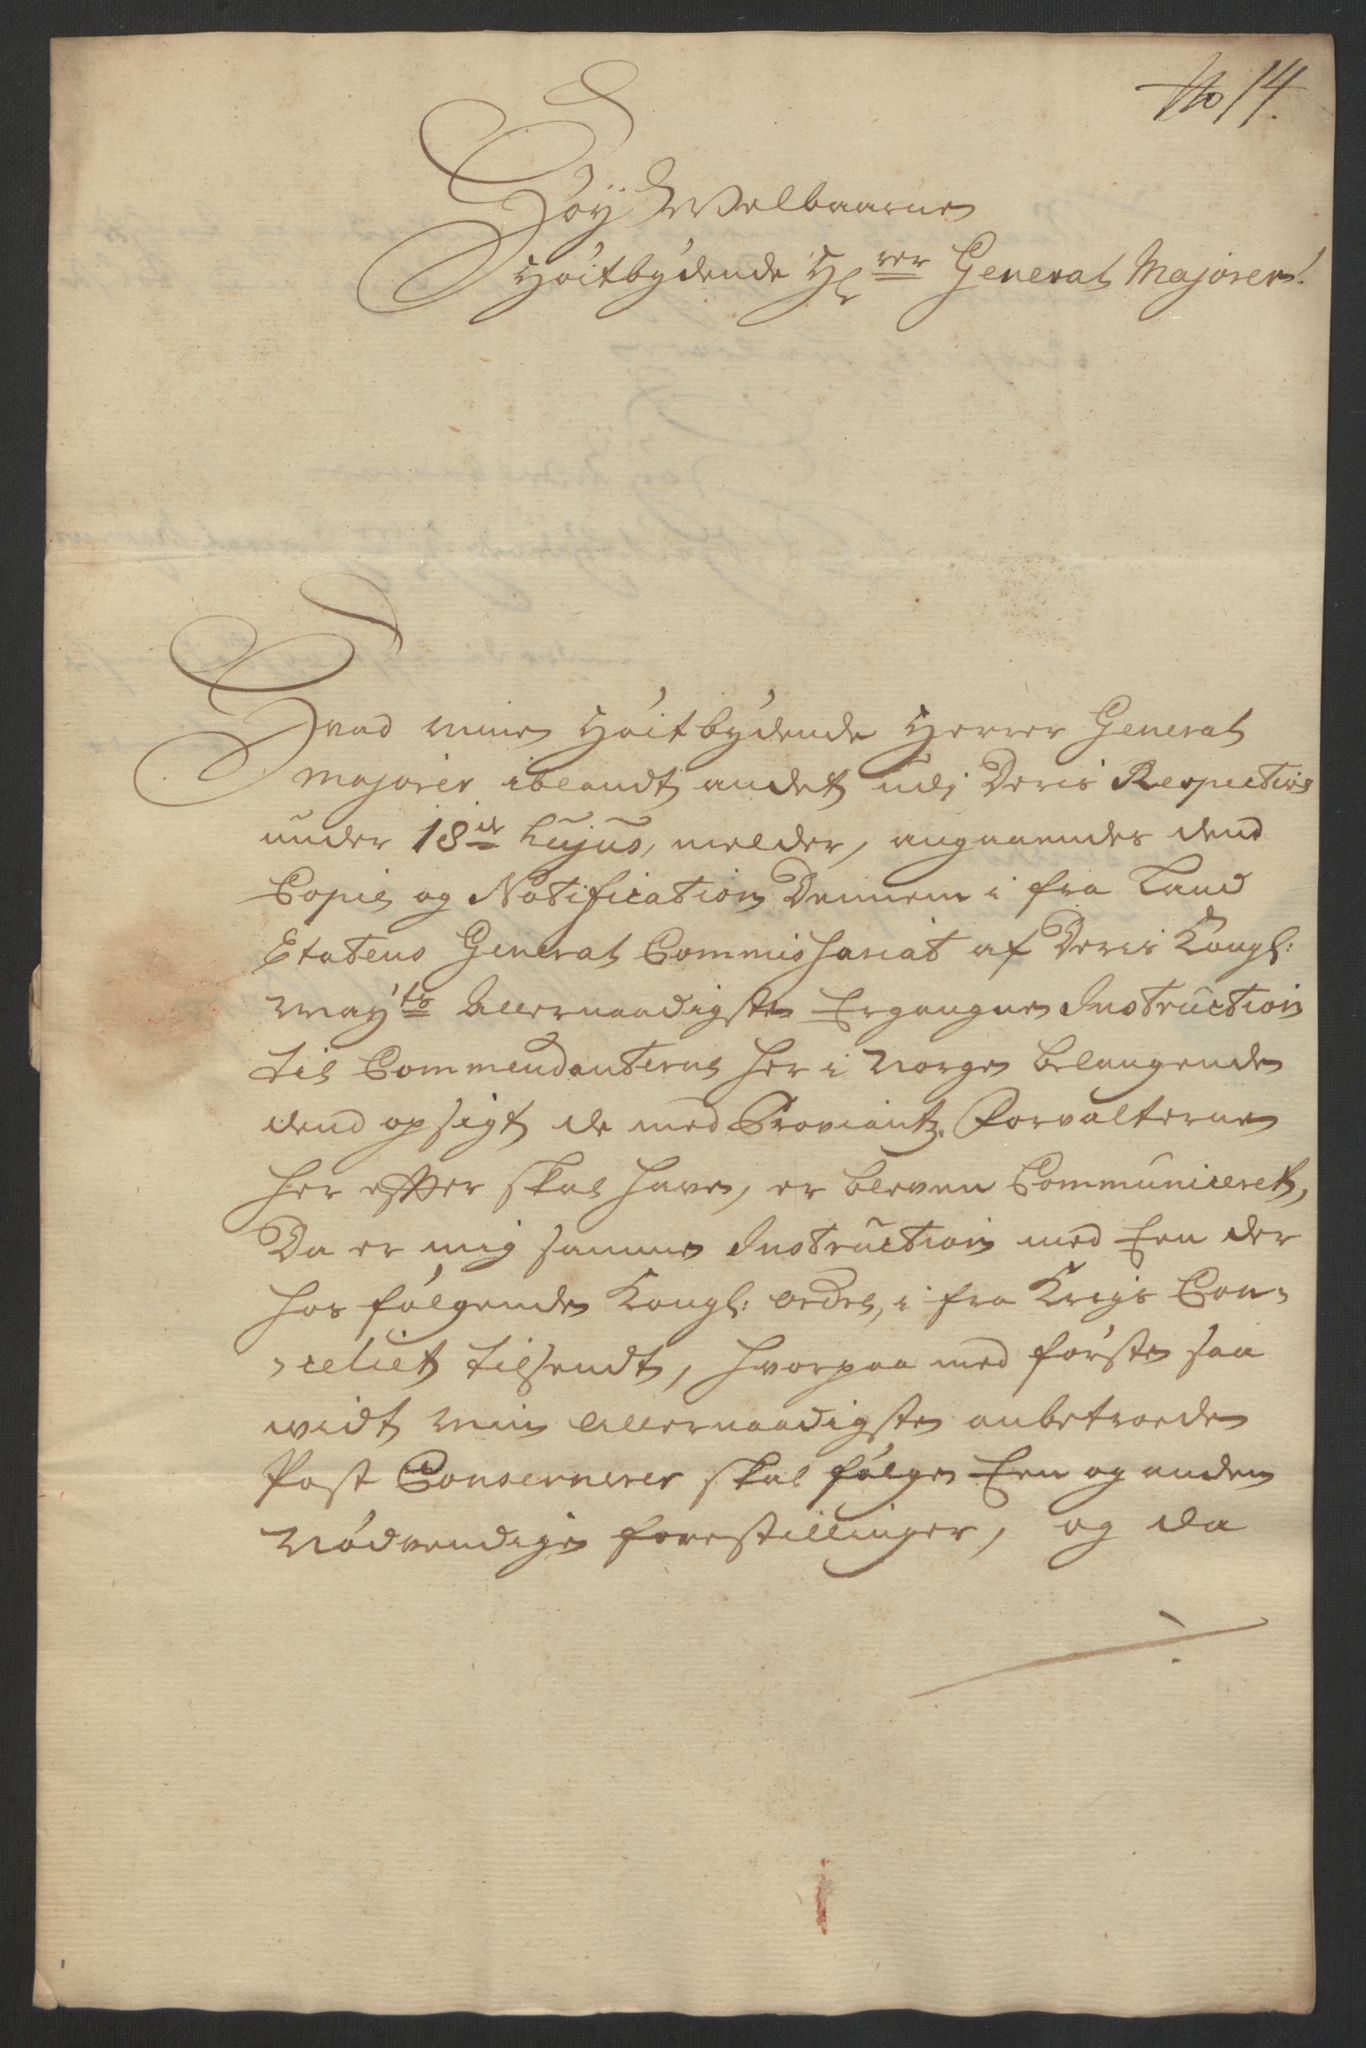 No 14.
Höy Welbaarne
Höitbydende H:rer General Majorer!
Hvad mine Höitbydende Herrer General
Majorer iblandt andet udj Deris Respective
under 18de hujus, melder, angaaendes dend
Copie og Notification Dennem i fra Land
Etatens General Commissariat af Deris Kongl:
May:ts Allernaadigste Ergangne Instruction
til Commendanterne her i Norge belangende
dend opsigt de med Proviantz Forvalterne
her effter skal have, er bleven Communiceret,
Da er mig samme Instruction med Een der
hos fölgende Kongl: ordre, i fra Krigs Can-
-celliet tilsendt, hvorpaa med förste saa
widt min allernaadigste anbetroede
Post Conserverer skal fölge Een og anden
Nödvendige forestillinger, og da